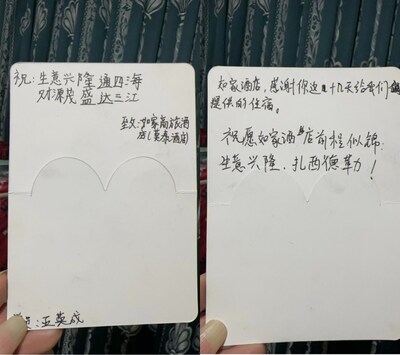 祝:生意兴隆通四海
财源茂盛达三江
致:如家商旅酒
店
如家酒店,感谢你这几十天给我们
提供的住宿。
祝愿如家酒店前程似锦.
生意兴隆、扎西德勒!